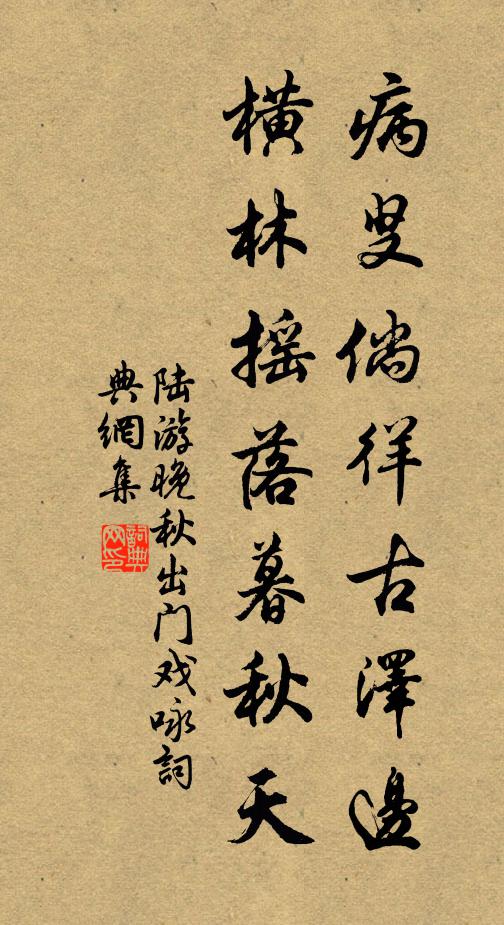 病叟倘徉古澤邊
橫林摇落暮秋天
陆游晚秋出门戏咏詞
典網集
詞典
网印